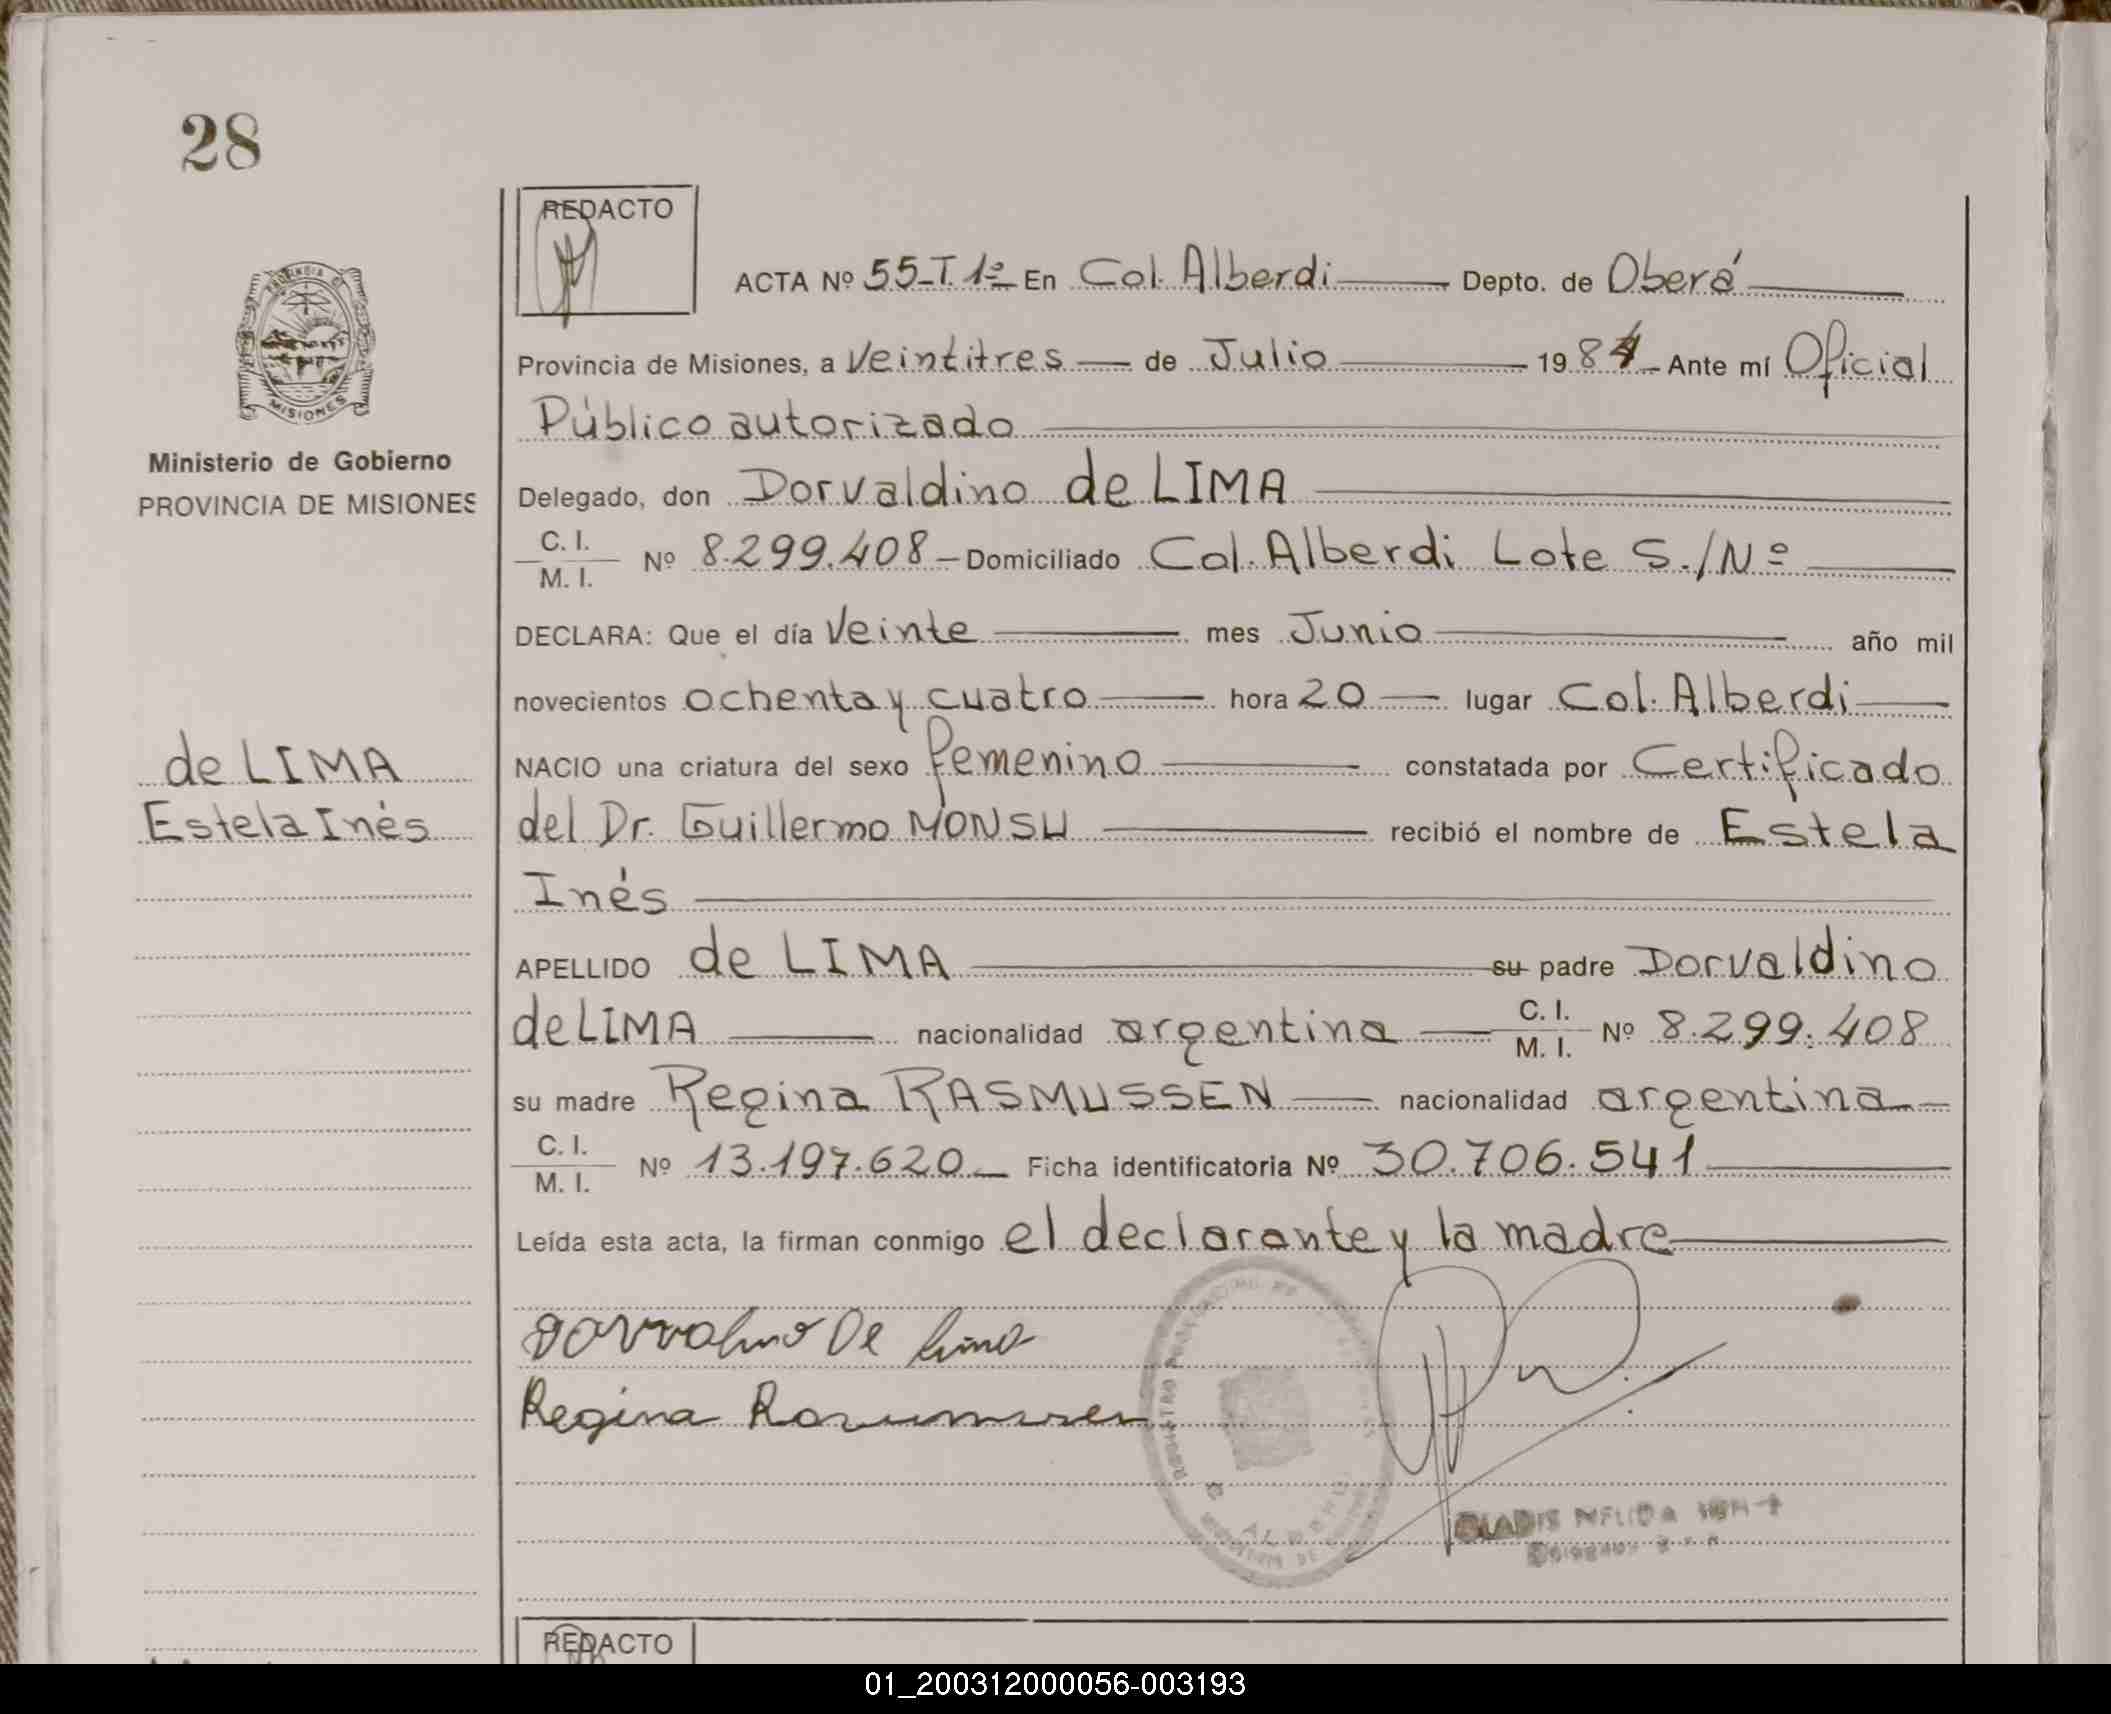 28
REDACTO
ACTA Nº 55-T.1º En Col. Alberdi Depto. de Oberá
Provincia de Misiones, a Veintitres de Julio 1984 Ante mí Oficial
Público autorizado
Ministerio de Gobierno
PROVINCIA DE MISIONES
MISIONES
Delegado, don Dorvaldino de LIMA
C. I.
M. I. Nº 8.299.408 Domiciliado Col. Alberdi Lote S./Nº
DECLARA: Que el día Veinte mes Junio año mil
novecientos ochenta y cuatro hora 20 lugar Col. Alberdi
de LIMA
Estela Inés
NACIO una criatura del sexo femenino constatada por Certificado
del Dr. Guillermo MONSU recibió el nombre de Estela
Inés
APELLIDO de LIMA su padre Dorvaldino
de LIMA nacionalidad argentina C. I. M. I. Nº 8.299.408
su madre Regina RASMUSSEN nacionalidad argentina
C. I.
M. I. Nº 13.197.620 Ficha identificatoria Nº 30.706.541
Leída esta acta, la firman conmigo el declarante y la madre
Dorvalino De Lima
Regina Rasmussen
REDACTO
01_200312000056-003193